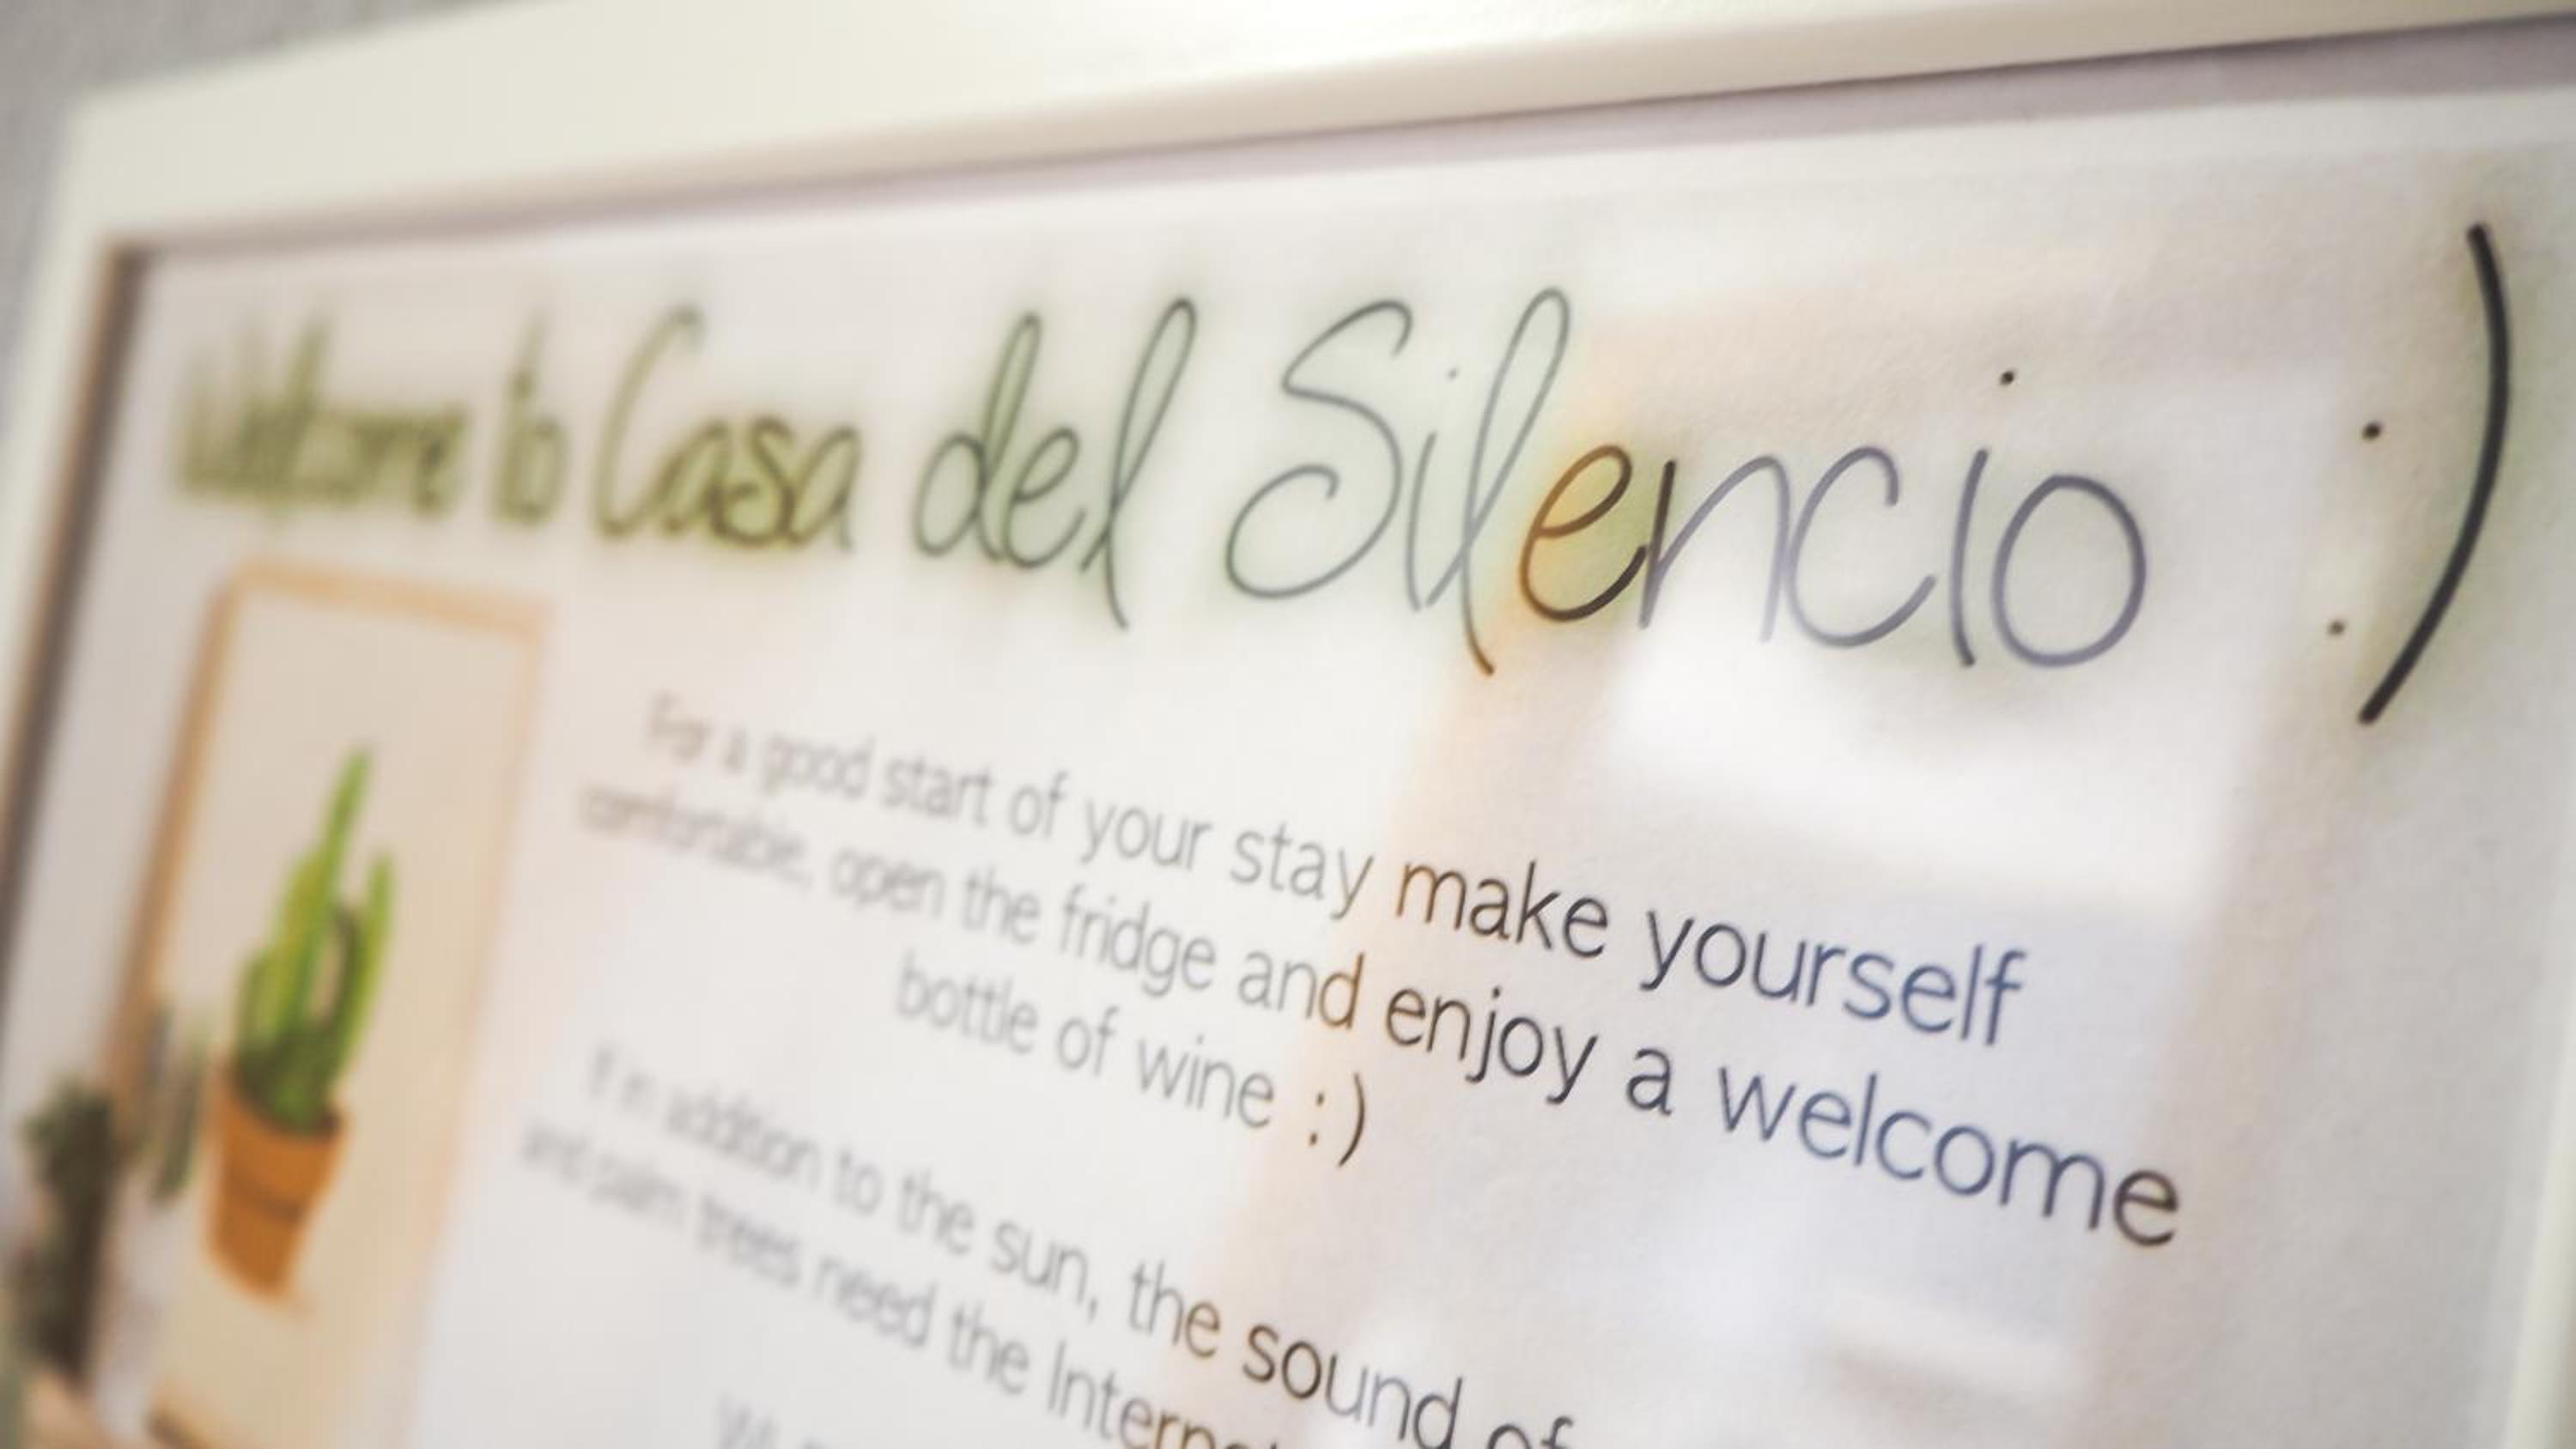 Welcome to Casa del Silencio :)
For a good start of your stay make yourself
comfortable, open the fridge and enjoy a welcome
bottle of wine :)
If in addition to the sun, the sound of
and palm trees need the Internet